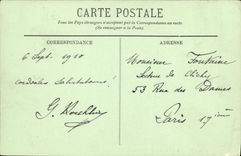 CARTE POSTALE
Tous les Pays étrangers n'acceptent pas la Correspondance au recto
(Se renseigner à la Poste)
CORRESPONDANCE
ADRESSE
6 Sept. 1910
cordiales Salutations!
Monsieur
53 Rue des Dames
Paris 17ième